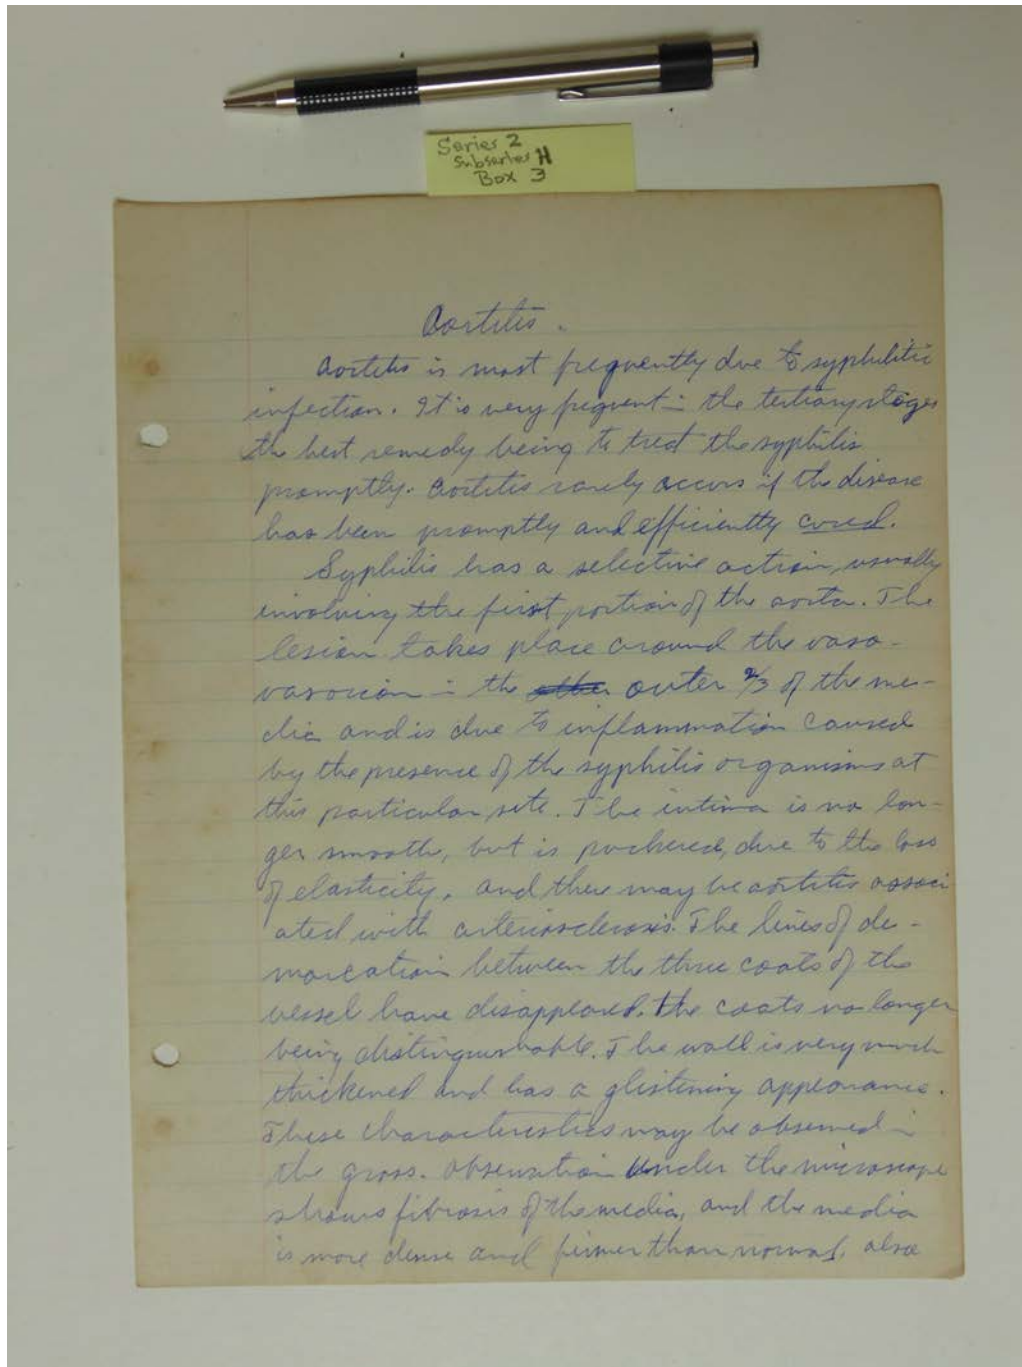 Series 2
Subseries H
Box 3
Aortitis.
Aortitis is most frequently due to syphilitic
infection. It is very frequent in the tertiary stages
the best remedy being to treat the syphilis
promptly. Aortitis rarely occurs if the disease
has been promptly and efficiently cured.
Syphilis has a selective action, usually
involving the first portion of the aorta. The
lesion takes place around the vaso-
vasorum in the outer 2/3 of the me-
dia and is due to inflammation caused
by the presence of the syphilis organisms at
this particular site. The intima is no lon-
ger smooth, but is puckered, due to the loss
of elasticity, and there may be aortitis associ-
ated with arteriosclerosis. The lines of de-
marcation between the three coats of the
vessel have disappeared. The coats no longer
being distinguishable. The wall is very much
thickened and has a glistening appearance.
These characteristics may be observed in
the gross. Observation under the microscope
shows fibrosis of the media, and the media
is more dense and firmer than normal. Also